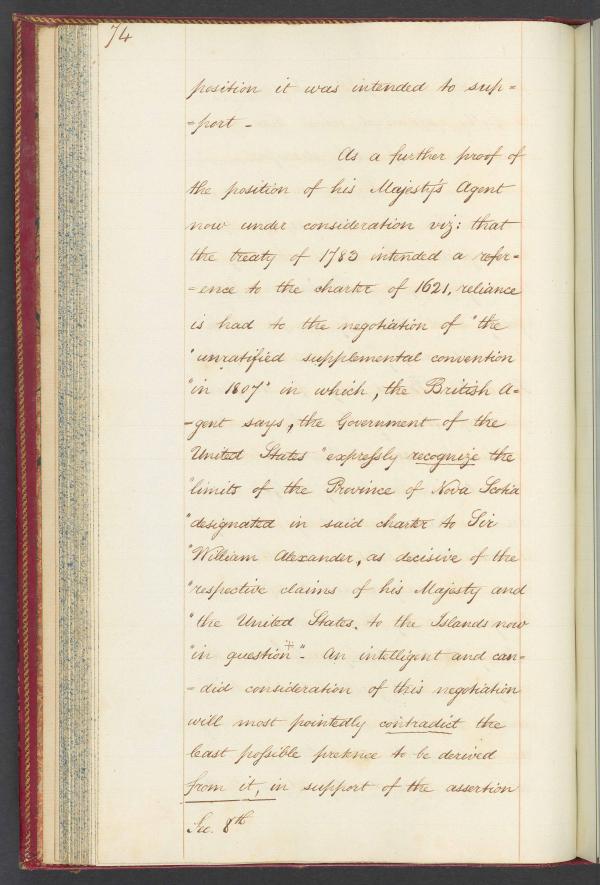 74
position it was intended to sup=
=port -
As a further proof of
the position of his Majesty's Agent
now under consideration viz: that
the treaty of 1783 intended a refer-
=ence to the charter of 1621, reliance
is had to the negotiation of "the
"unratified supplemental convention
"in 1807" in which, the British A=
-gent says, the Government of the
United States "expressly recognize the
"limits of the Province of Nova Scotia
"designated in said charter to Sir
"William Alexander, as decisive of the
"respective claims of his Majesty and
"the United States, to the Islands now
"in question +". An intelligent and can=
=did consideration of this negotiation
will most pointedly contradict the
least possible pretence to be derived
from it, in support of the assertion
Sec. 8th